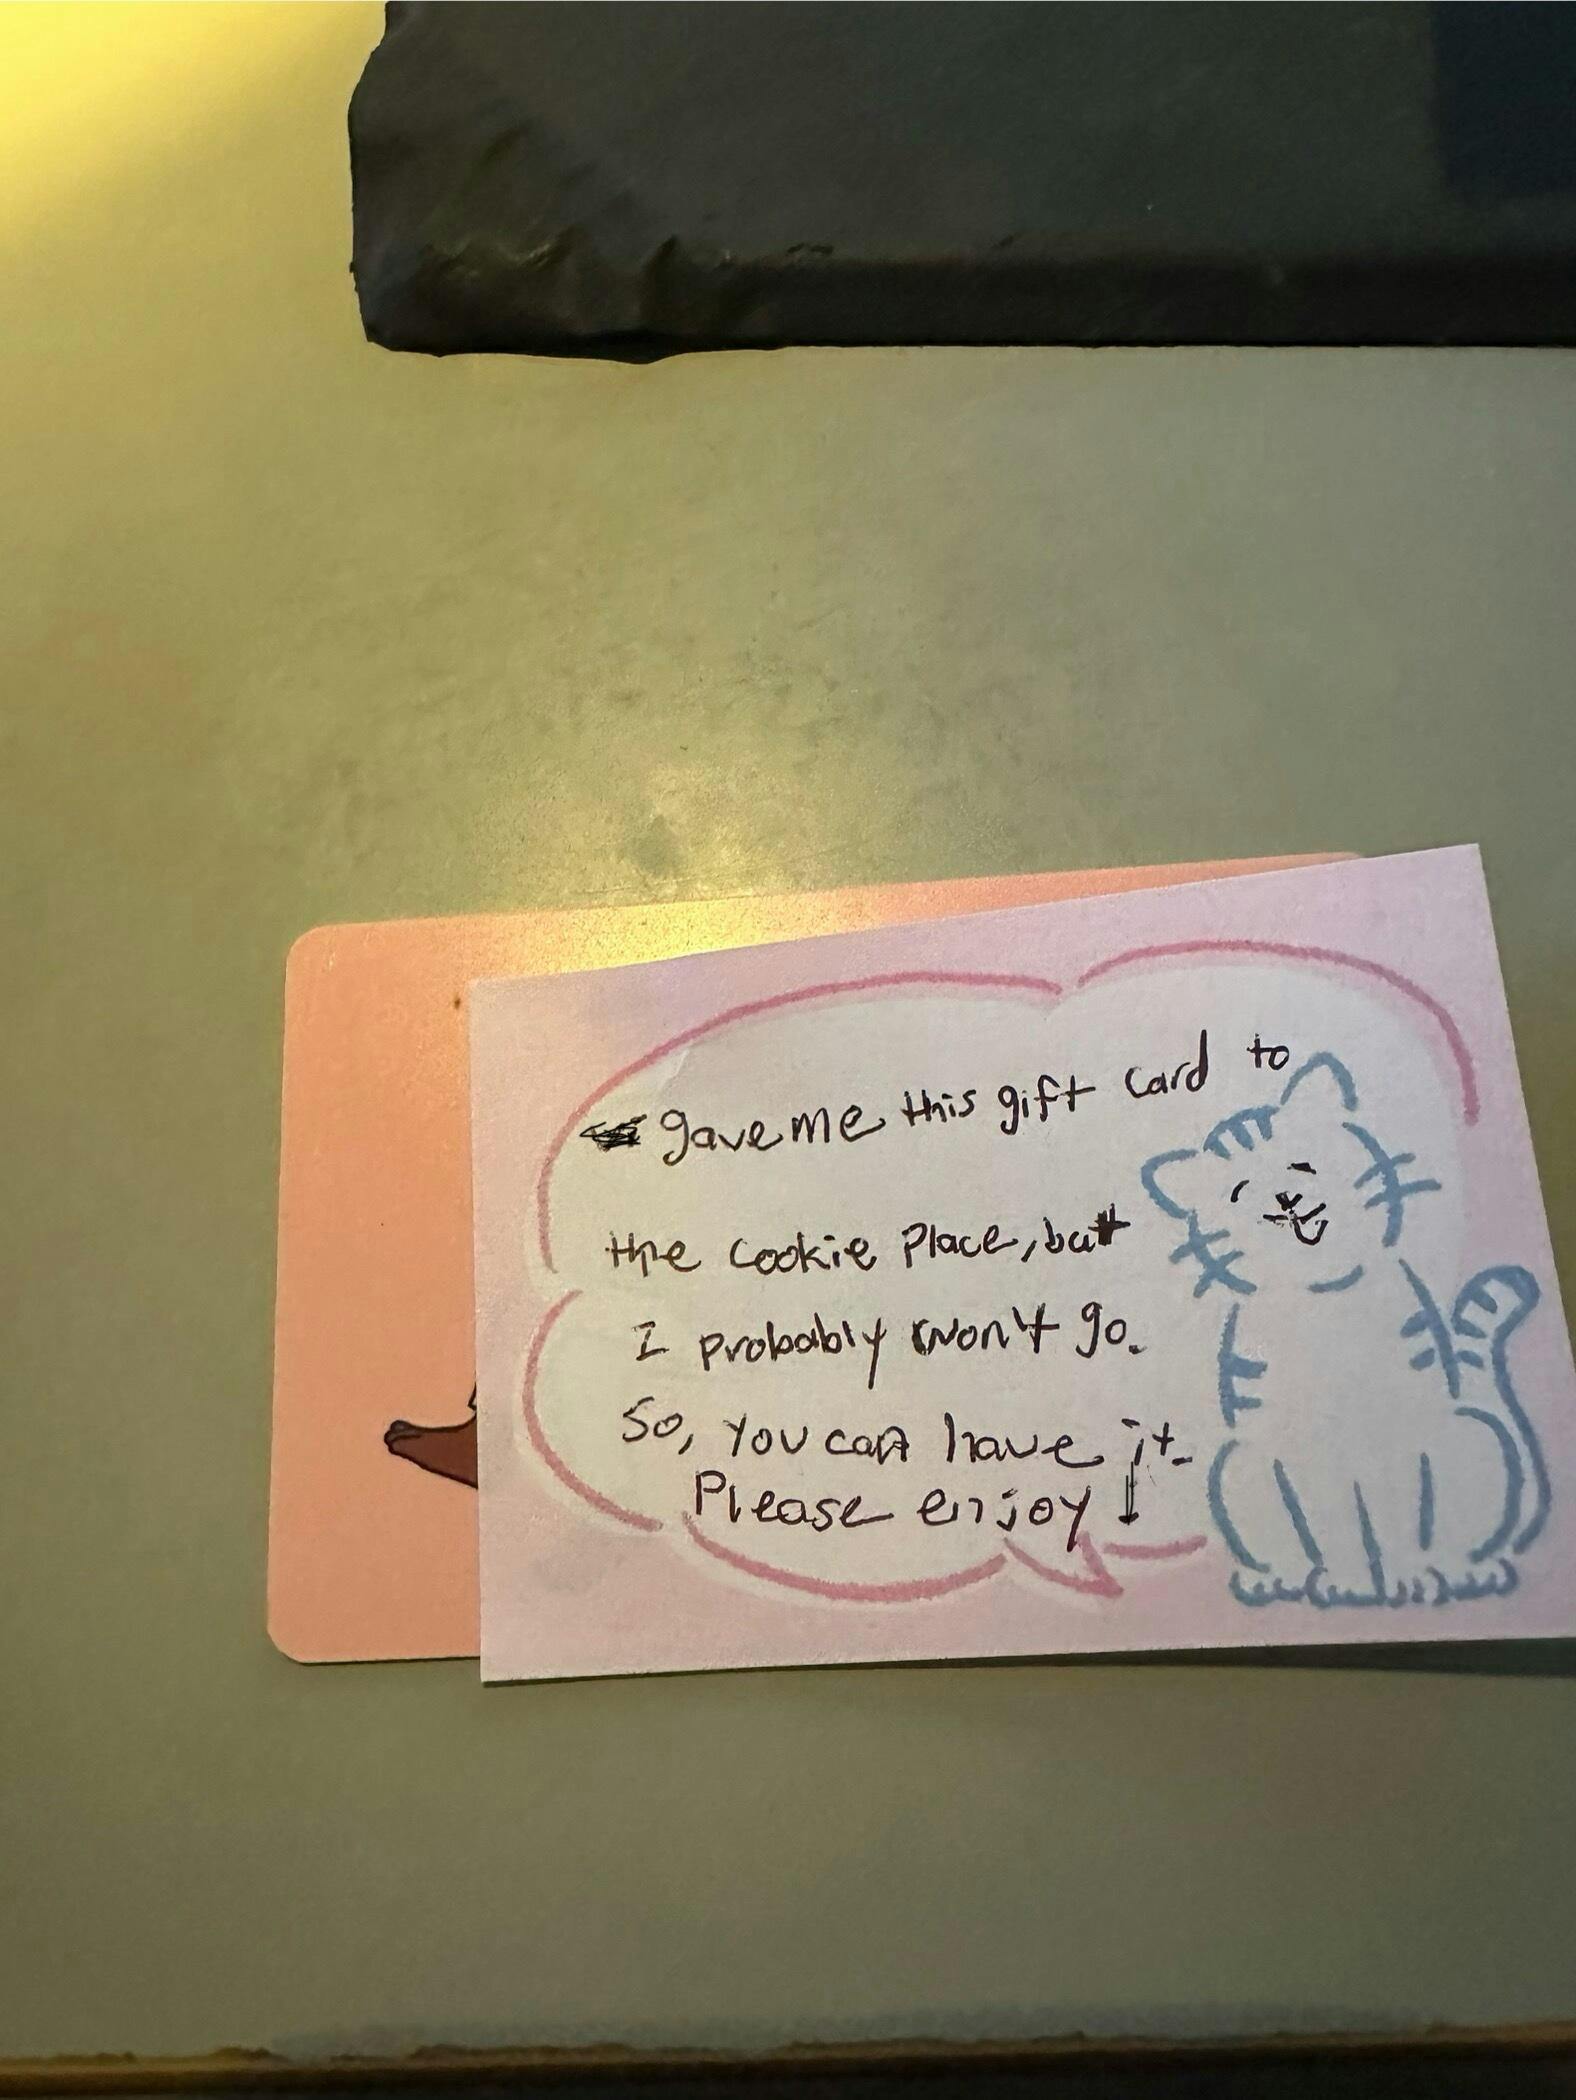 gave me this gift card to
the cookie place, but
I probably won't go.
So, you can have it.
Please enjoy